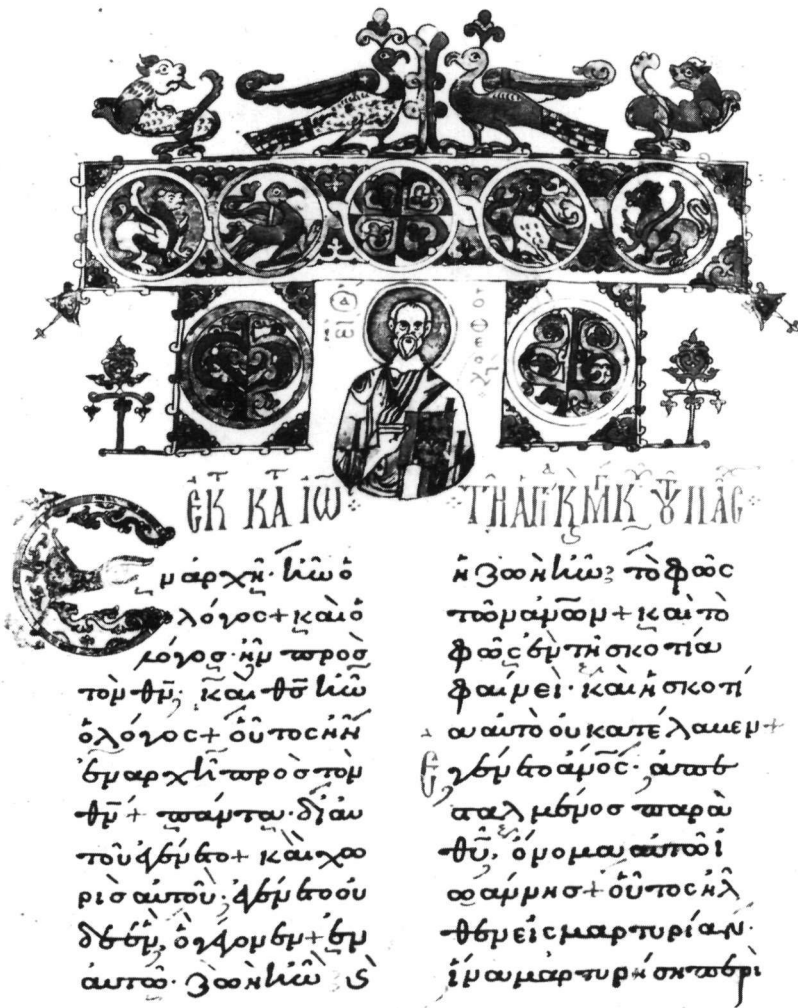 ἐκ τ κατ ἰω
τῇ ἁγί κ
Ἐν ἀρχῆ· ἦν ὁ
λόγος + καὶ ὁ
λόγος· ἦν πρὸς
τὸν θν̄, καὶ θς̄ ἦν
ὁ λόγος + οὗτος ἦν
ἐν ἀρχῆ πρὸς τὸν
θν̄ + πάντα· δι αὐ
τοῦ ἐγένετο + καὶ χω
ρὶς αὐτοῦ, ἐγένετο οὐ
δὲ ἕν, ὃ γέγονεν + ἐν
αὐτῶ· ζωὴ ἦν, καὶ
ἡ ζωὴ ἦν, τὸ φῶς
τῶν ἀνω̄ν + καὶ τὸ
φῶς ἐν τῆ σκοτία
φαίνει· καὶ ἡ σκοτί
α αὐτὸ οὐ κατέλαβεν +
Ἐγένετο ἀνο̄ς· ἀπεσ
ταλμένος παρὰ
θῡ, ὄνομα αὐτῶ ἰ
ωάννης + οὗτος ἦλ
θεν εἰς μαρτυρίαν·
ἵνα μαρτυρήση περὶ